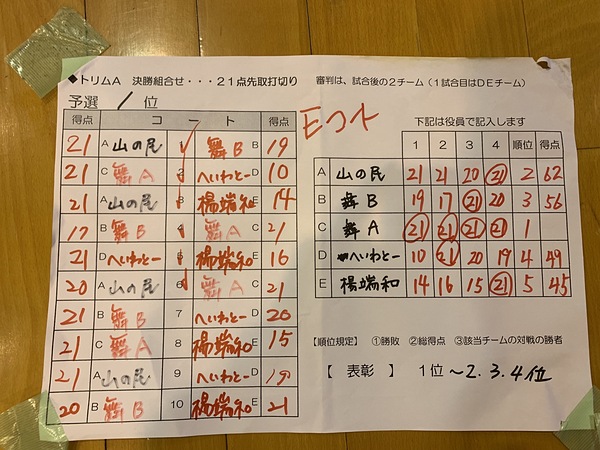 ◆トリムA 決勝組合せ・・・21点先取打切り 審判は、試合後の2チーム（1試合目はDEチーム）
予選 1 位
Eコート
得点 コート 得点
21 A 山の民 1 舞B B 19
21 C 舞A 2 へいわとー D 10
21 A 山の民 3 楊端和 E 14
17 B 舞B 4 舞A C 21
21 D へいわとー 5 楊端和 E 16
20 A 山の民 6 舞A C 21
21 B 舞B 7 へいわとー D 20
21 C 舞A 8 楊端和 E 15
21 A 山の民 9 へいわとー D 19
20 B 舞B 10 楊端和 E 21
下記は役員で記入します
1 2 3 4 順位 得点
A 山の民 21 21 20 21 2 62
B 舞B 19 17 21 20 3 56
C 舞A 21 21 21 21 1
D へいわとー 10 21 20 19 4 49
E 楊端和 14 16 15 21 5 45
【順位規定】 ①勝敗 ②総得点 ③該当チームの対戦の勝者
【 表彰 】 1位 〜2.3.4位